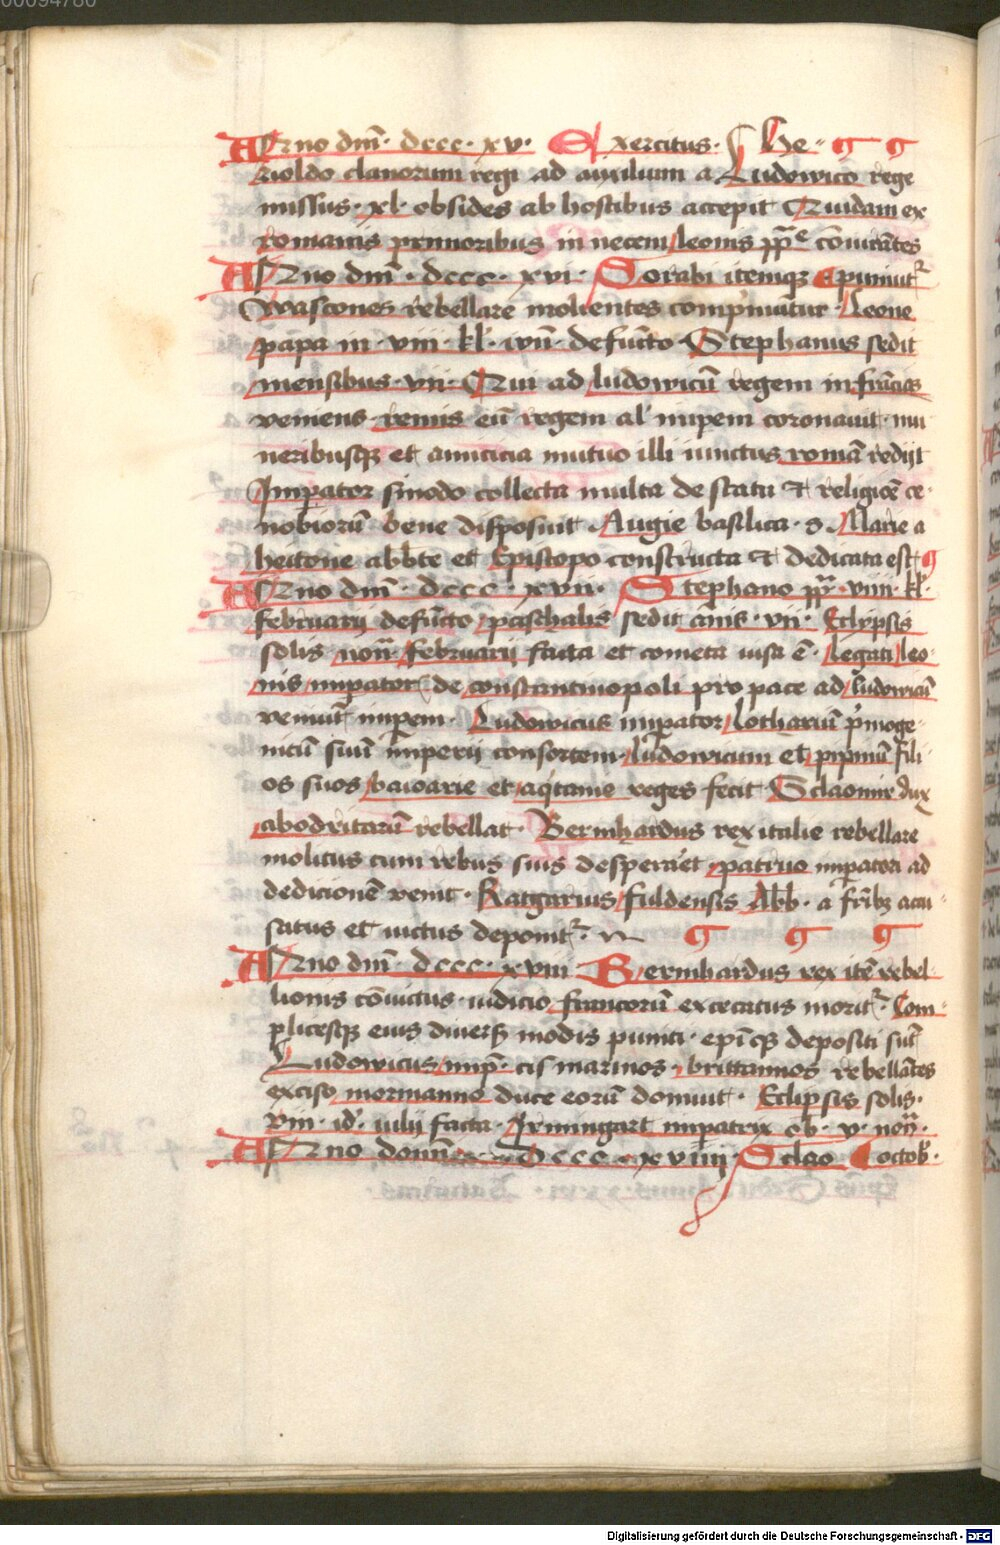 00094780
Anno dm̄· dccc· xv· Exercitus· he-
rioldo danorum regi ad auxilium a Ludowico rege
missus· xl· obsides ab hostibus accepit Quidam ex
romanis primoribus in necem leonis pp̄e cōiurātes
Anno dm̄· dccc· xvi· Sorabi itemqȝ puniūtʳ
Wascones rebellare molientes comp̄muntur Leone
papa in· viii· kl̄· iun̄· defūcto Stephanus sedit
mensibus· vii· Qui ad ludowicū regem in francia
veniens remis eū regem al' imp̄em coronauit· mu-
neribusqȝ et amicicia mutuo illi iunctus romā redijt
Imp̄ator sinodo collecta multa de statu et religiōe ce-
nobiorū bene disposuit Augie basilica· s· Marie a
heitone abbte et Episcopo constructa et dedicata est
Anno dm̄· dccc· xvii· Stephano pp̄· viiii· kl̄·
februarij defūcto paschalis sedit anis· vii· Eclypsis
solis· non̄ februarij facta et cometa uisa ē· Legati leo-
nis imp̄ator de constantinopoli pro pace ad ludowicū
veniūt imp̄em· Ludowicus imp̄ator lotharium p̄moge-
nitū suū imperij consortem ludowicum et pipinū fili-
os suos baioarie et aq̄tanie reges fecit Sclaomir dux
abodritarū rebellat· Bernhardus rex italie rebellare
molitus cum rebus suis desperaret patruo imp̄atori ad
dedicionē venit· Ratgarius fuldensis Abb· a fr̄ibȝ accu-
satus et uictus deponitʳ·
Anno dm̄· dccc· xviii Bernhardus rex itē rebel-
lionis cōuictus· iudicio francorū excecatus moritʳ· Com-
plicesqȝ eius diuersȝ modis puniti· ep̄icȝ depositi sūt
Ludowicus imp̄· cis marinos· brittannos rebellātes
exciso mormanno duce eorū domuit· Eclipsis solis·
viii· id̄· iulij facta· Irmingart imp̄atrix ob· v· non̄·
Anno domī· Dccc· xviiii Sclao octob̄·
Digitalisierung gefördert durch die Deutsche Forschungsgemeinschaft - DFG